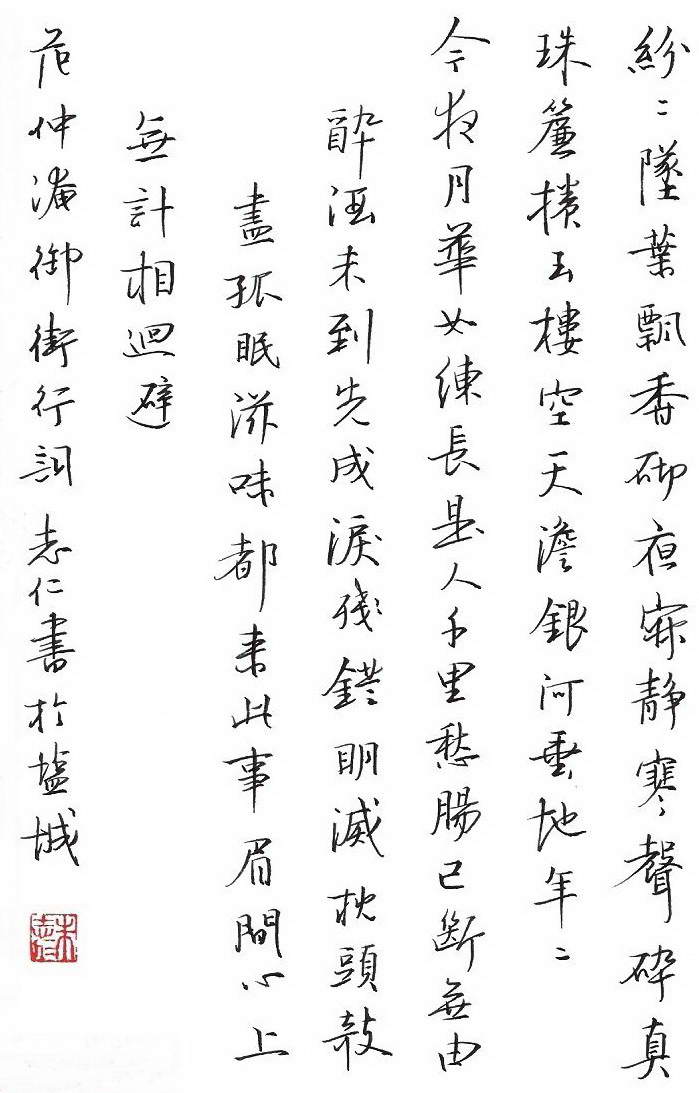 紛〻墜葉飄香砌夜寂靜寒聲碎真
珠簾捲玉樓空天澹銀河垂地年〻
今夜月華如練長是人千里愁腸已斷無由
醉酒未到先成淚殘鐙明滅枕頭敧
盡孤眠滋味都來此事眉間心上
無計相迴避
范仲淹御街行詞志仁書於塩城